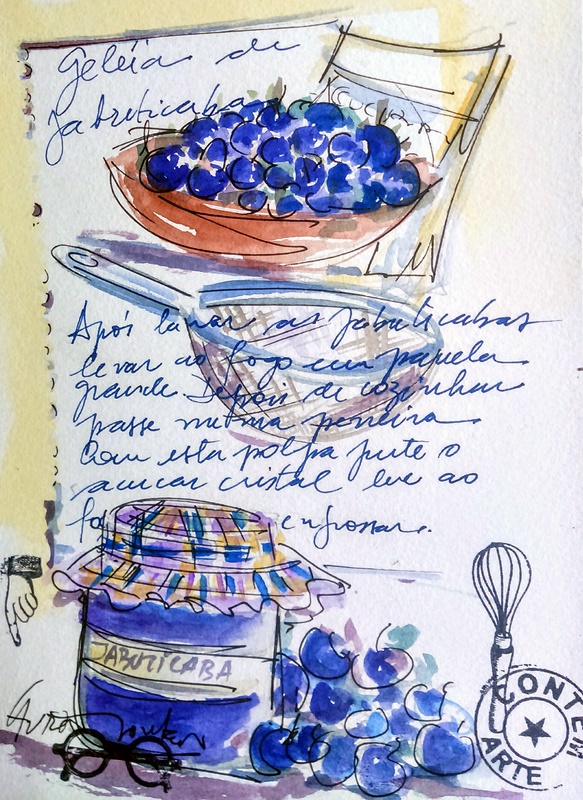 Geléia de
Jabuticaba
Após lavar as jabuticabas
levar ao fogo em panela
grande. Depois de cozinhar
passe numa peneira.
Com esta polpa junte o
açucar cristal leve ao
fo engrossar.
JABUTICABA
CONTÉM
ARTE